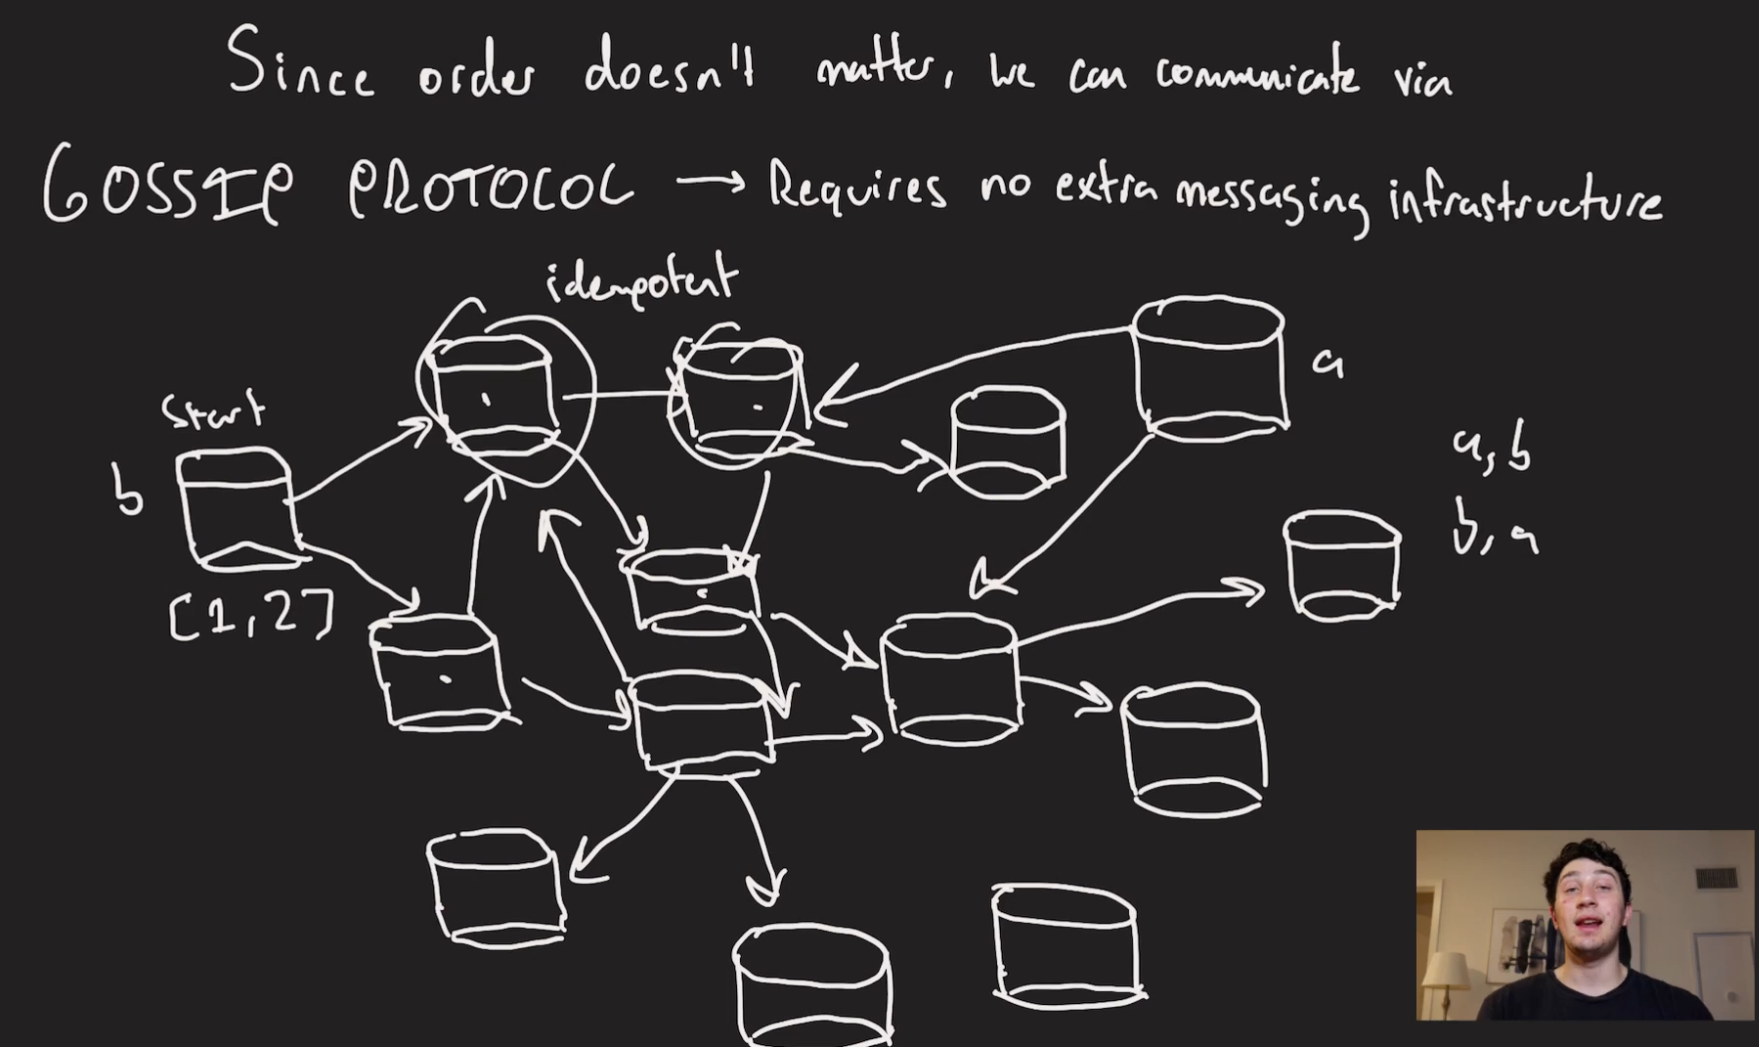 Since order doesn't matter, we can communicate via
GOSSIP PROTOCOL → Requires no extra messaging infrastructure
idempotent
a
start
b
a, b
b, a
[1,2]